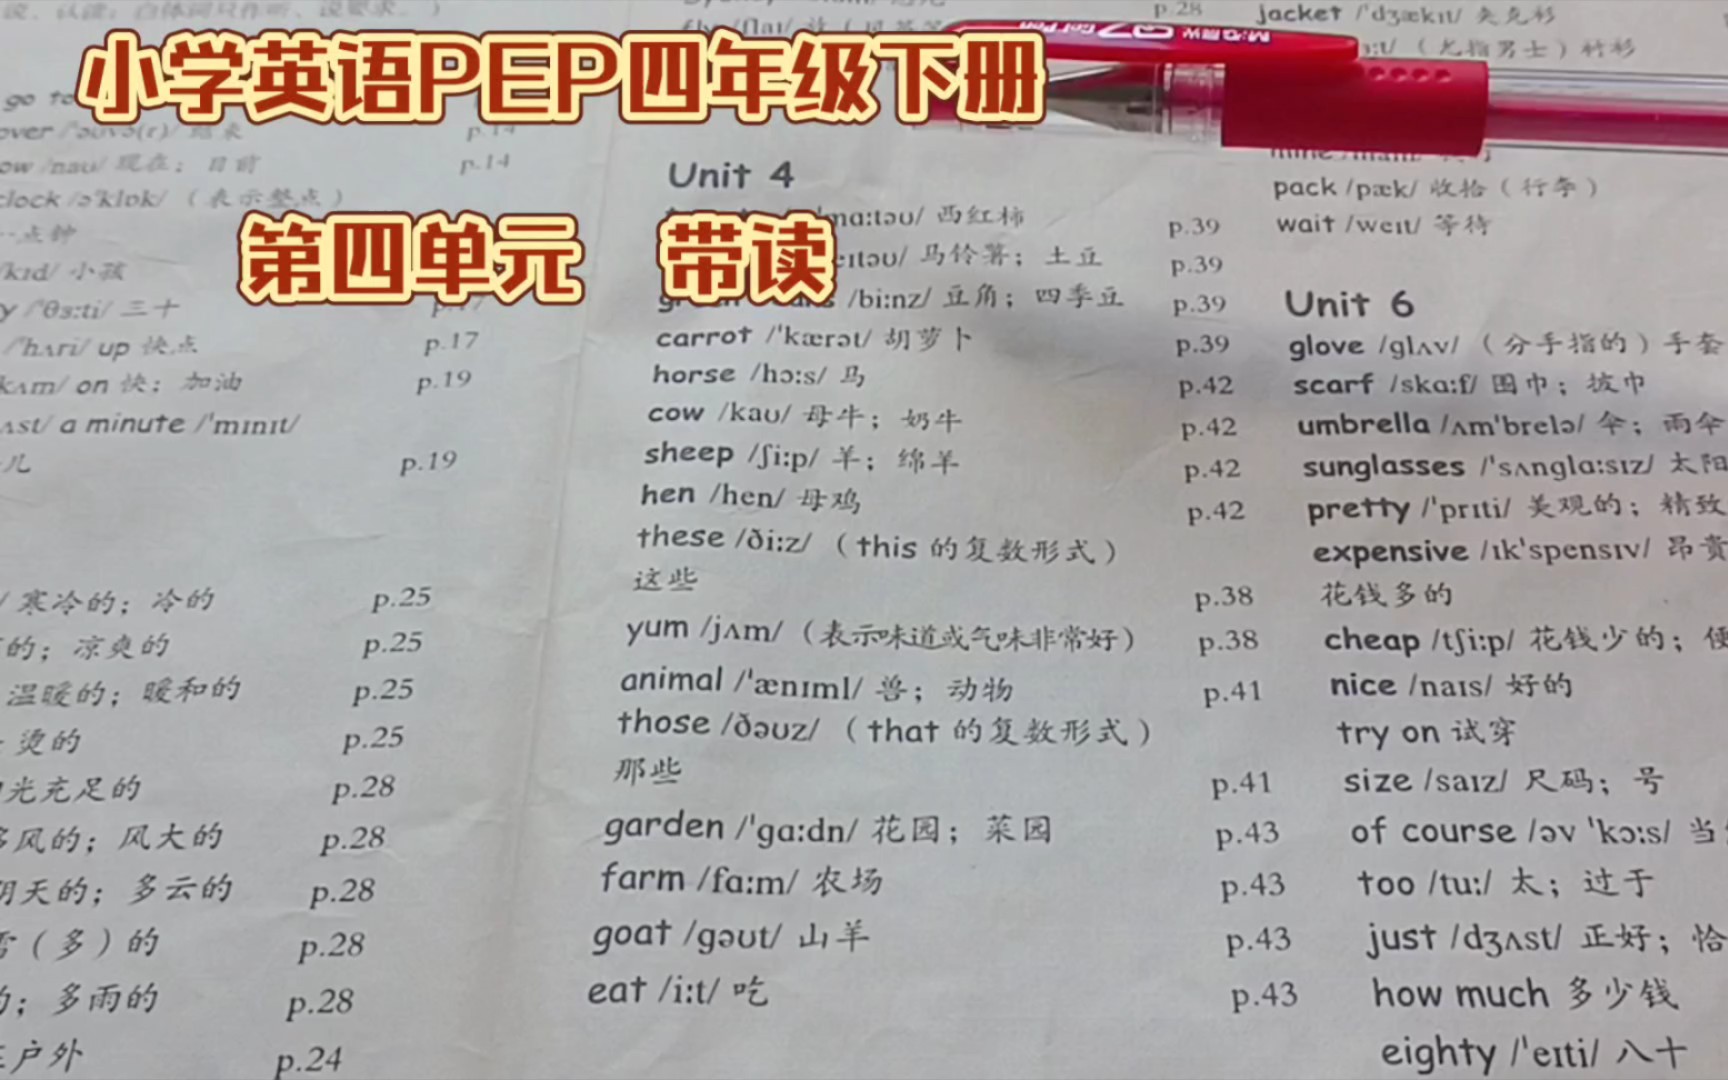 小学英语PEP四年级下册
第四单元 带读
go to
over /ˈəʊvə(r)/ 结束 p.14
now /naʊ/ 现在；目前 p.14
clock /əˈklɒk/（表示整点）
点钟
/kɪd/ 小孩
/ˈθɜːti/ 三十 p.17
/ˈhʌri/ up 快点 p.17
/kʌm/ on 快；加油 p.19
a minute /ˈmɪnɪt/
儿 p.19
寒冷的；冷的 p.25
的；凉爽的 p.25
温暖的；暖和的 p.25
烫的 p.25
光充足的 p.28
多风的；风大的 p.28
阴天的；多云的 p.28
雪（多）的 p.28
的；多雨的 p.28
户外 p.24
p.28
Unit 4
/məːtəʊ/ 西红柿 p.39
马铃薯；土豆 p.39
/biːnz/ 豆角；四季豆 p.39
carrot /ˈkærət/ 胡萝卜 p.39
horse /hɔːs/ 马 p.42
cow /kaʊ/ 母牛；奶牛 p.42
sheep /ʃiːp/ 羊；绵羊 p.42
hen /hen/ 母鸡 p.42
these /ðiːz/（this 的复数形式）
这些 p.38
yum /jʌm/（表示味道或气味非常好） p.38
animal /ˈænɪml/ 兽；动物 p.41
those /ðəʊz/（that 的复数形式）
那些 p.41
garden /ˈɡɑːdn/ 花园；菜园 p.43
farm /fɑːm/ 农场 p.43
goat /ɡəʊt/ 山羊 p.43
eat /iːt/ 吃 p.43
jacket /ˈdʒækɪt/ 夹克衫
（尤指男士）衬衫
pack /pæk/ 收拾（行李）
wait /weɪt/ 等待
Unit 6
glove /ɡlʌv/（分手指的）手套
scarf /skɑːf/ 围巾；披巾
umbrella /ʌmˈbrelə/ 伞；雨伞
sunglasses /ˈsʌnɡlɑːsɪz/ 太阳
pretty /ˈprɪti/ 美观的；精致
expensive /ɪkˈspensɪv/ 昂贵
花钱多的
cheap /tʃiːp/ 花钱少的；便
nice /naɪs/ 好的
try on 试穿
size /saɪz/ 尺码；号
of course /əv ˈkɔːs/ 当
too /tuː/ 太；过于
just /dʒʌst/ 正好；恰
how much 多少钱
eighty /ˈeɪti/ 八十